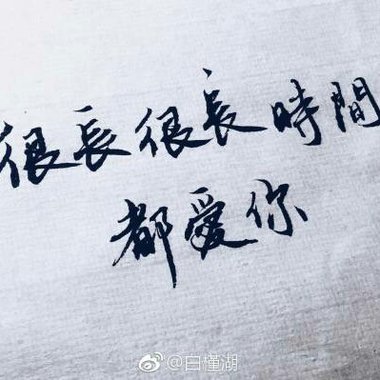 很長很長時間
都愛你
@白槿湖